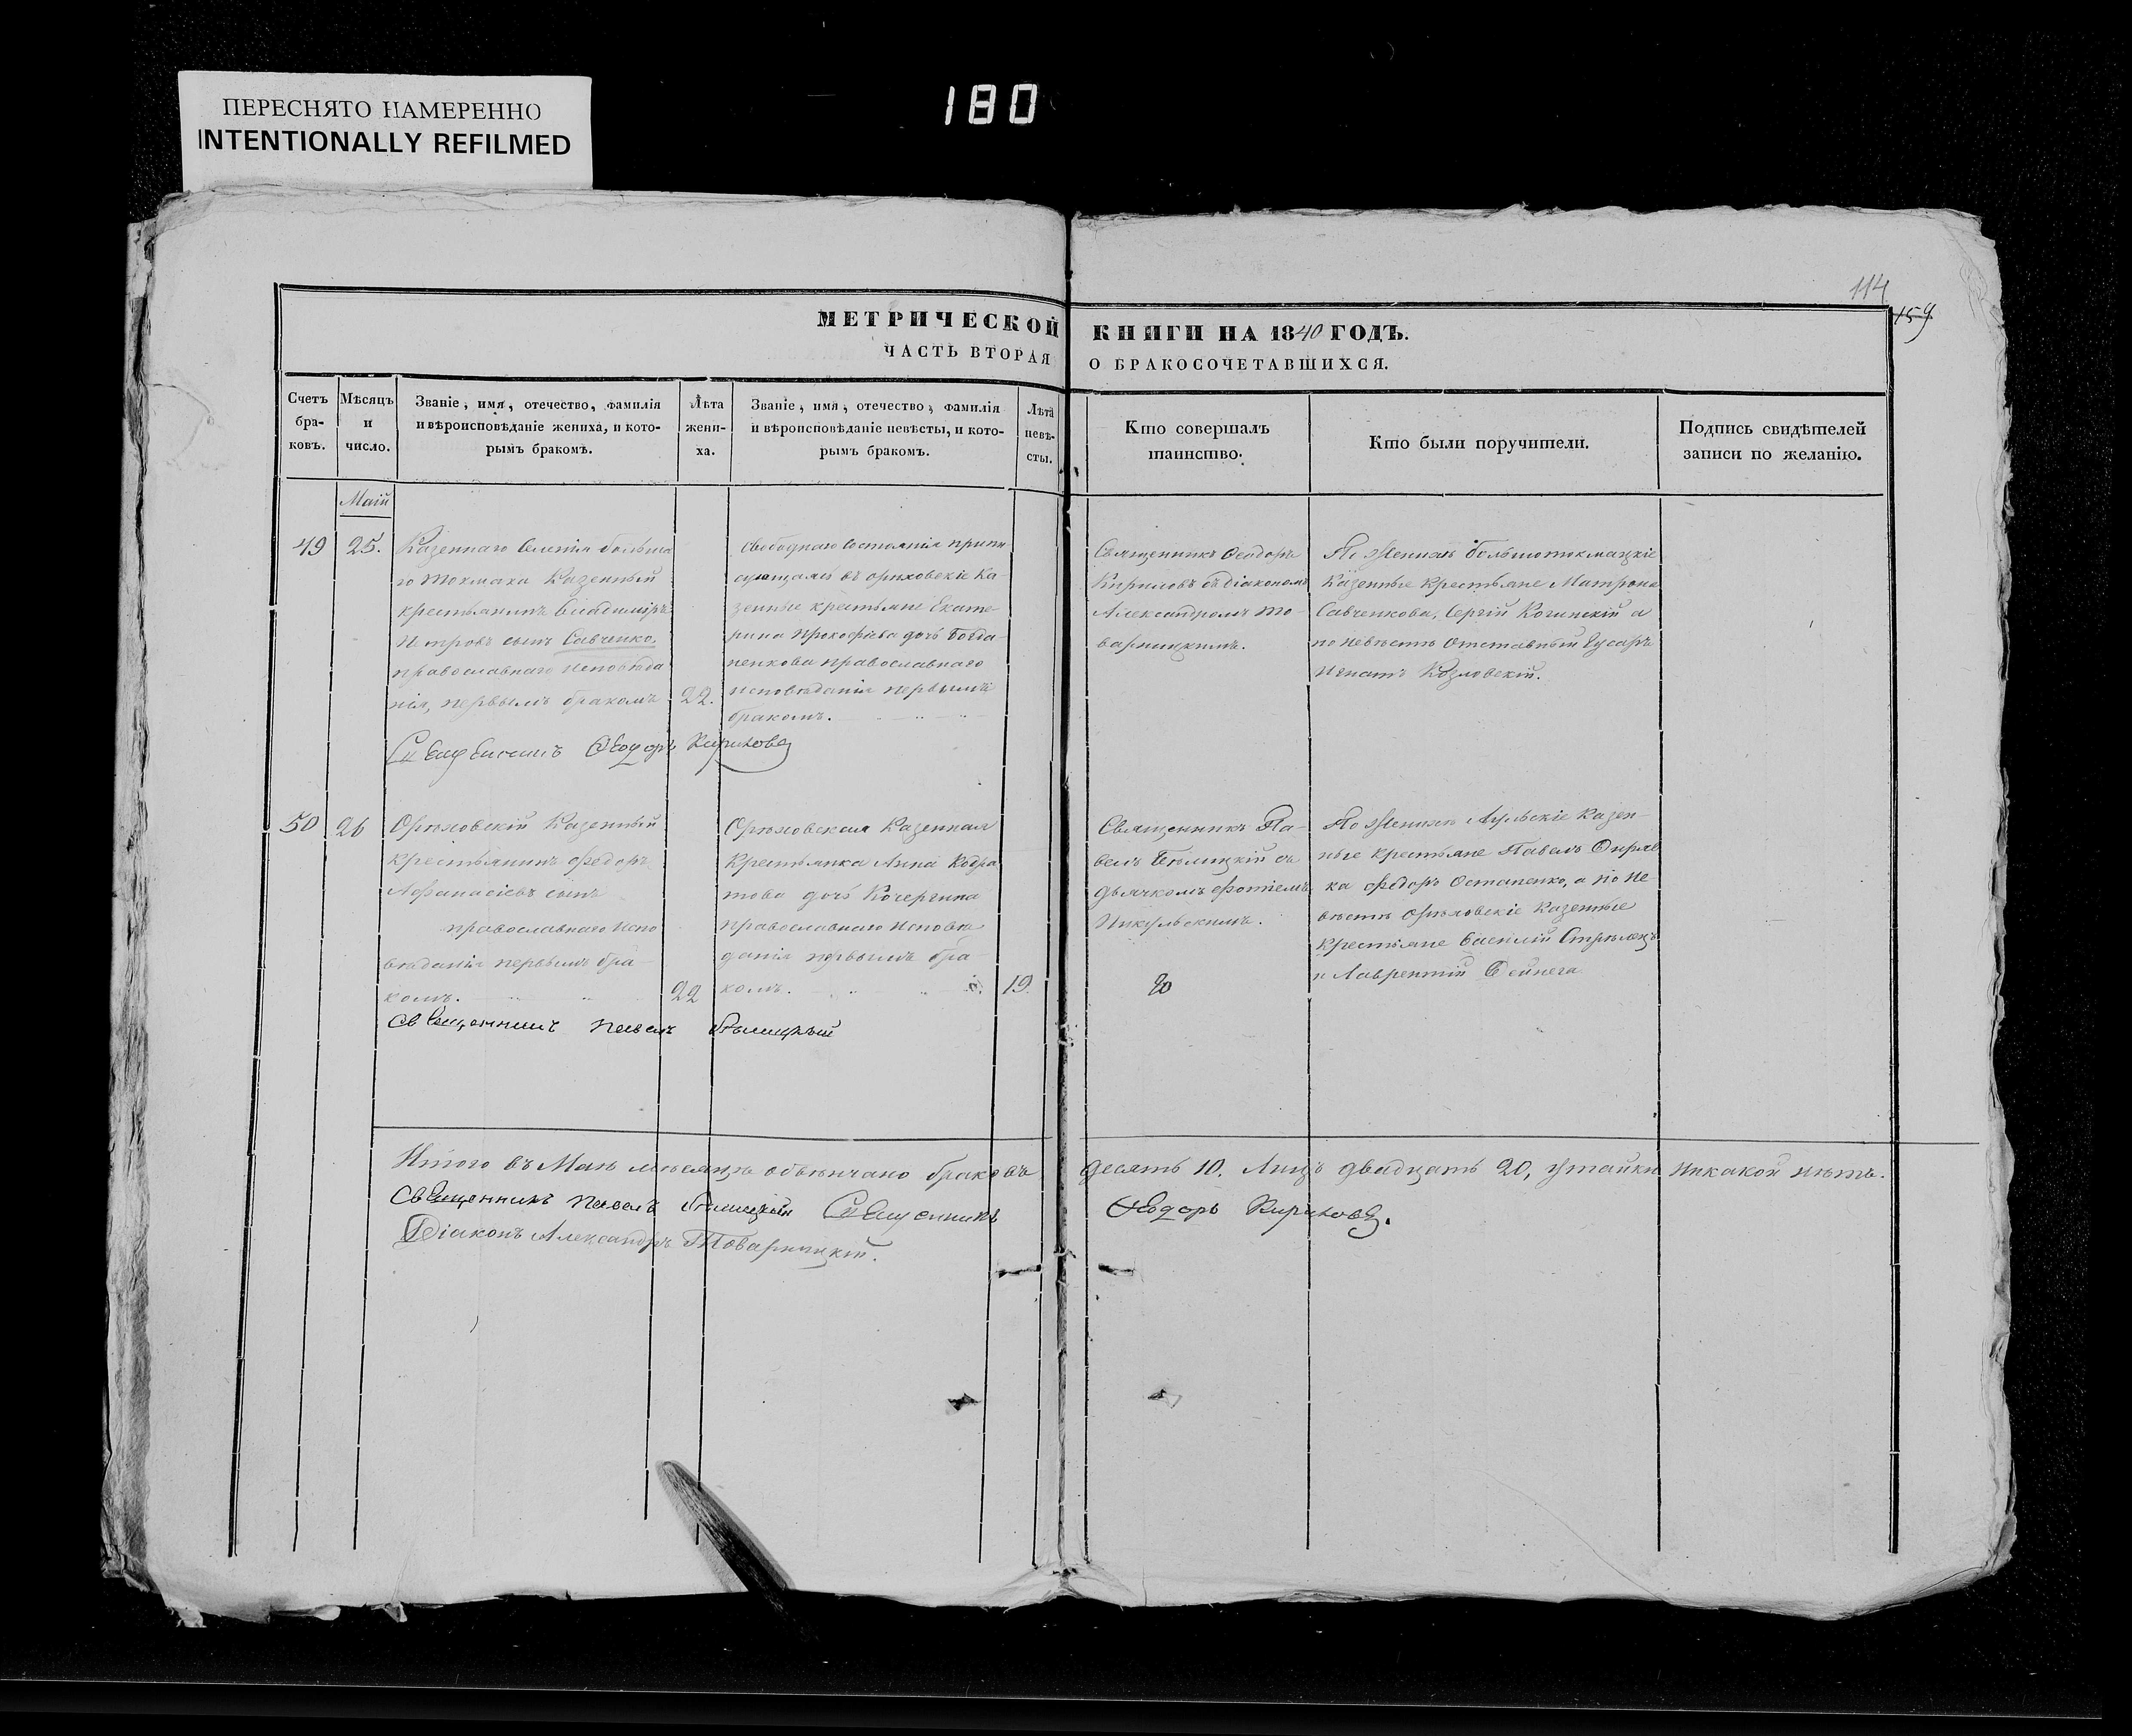 ПЕРЕСНЯТО НАМЕРЕННО
INTENTIONALLY REFILMED
180
114
159
МЕТРИЧЕСКОЙ КНИГИ НА 1840 ГОДЪ.
ЧАСТЬ ВТОРАЯ О БРАКОСОЧЕТАВШИХСЯ.
Счетъ
бра-
ковъ.
Мѣсяцъ
и
число.
Званіе, имя, отечество, фамилія
и вѣроисповѣданіе жениха, и кото-
рымъ бракомъ.
Лѣта
жени-
ха.
Званіе, имя, отечество, фамилія
и вѣроисповѣданіе невѣсты, и кото-
рымъ бракомъ.
Лѣта
невѣ-
сты.
Кто совершалъ
таинство.
Кто были поручители.
Подпись свидѣтелей
записи по желанію.
Маій
49
25.
Казеннаго Селенія больша
го токмака Казенный
крестьянинъ Владиміръ
Петровъ сынъ Савченко,
православнаго исповѣда
нія, первымъ бракомъ
22.
Свободнаго состоянія
въ орѣховскіе Ка-
зенные крестьяне Екате-
рина Прокофіева дочь Богда-
ненкова православнаго
исповѣданія первымъ
бракомъ.
Священникъ Феодоръ
Кириловъ съ діакономъ
Александромъ То-
варницкимъ.
По Женихѣ большотокмацкіе
Казенные крестьяне Матрона
Савченкова, Сергій а
по невѣстѣ отставный Гусаръ
Игнатъ Козловскій.
Священникъ Феодоръ Кириловъ
50
26
Орѣховскій Казенный
крестьянинъ Федоръ
Афанасіевъ сынъ
православнаго испо
вѣданія первымъ бра-
комъ.
22
Орѣховская Казенная
крестьянка Анна Кодра
това дочь Кочергина
православнаго исповѣ
данія первымъ бра-
комъ.
19.
Священникъ Па-
велъ Бѣлицкій съ
дьячкомъ Фотіемъ
Никульскимъ.
20
По Женихѣ Аульскіе Казен-
ные крестьяне Павелъ
ка Федоръ Остапенко, а по не-
вѣстѣ Орѣховскіе Казенные
крестьяне Василій Стрѣлецъ
и Лаврентій Дейнега
Священникъ Павелъ Бѣлицкій
Итого въ Маѣ мѣсяцѣ обвѣнчано браковъ десять 10. Лицъ двадцать 20, утайки никакой нѣтъ.
Священникъ Павелъ Бѣлицкій Священникъ Феодоръ Кириловъ.
Діаконъ Александръ Товарницкій.